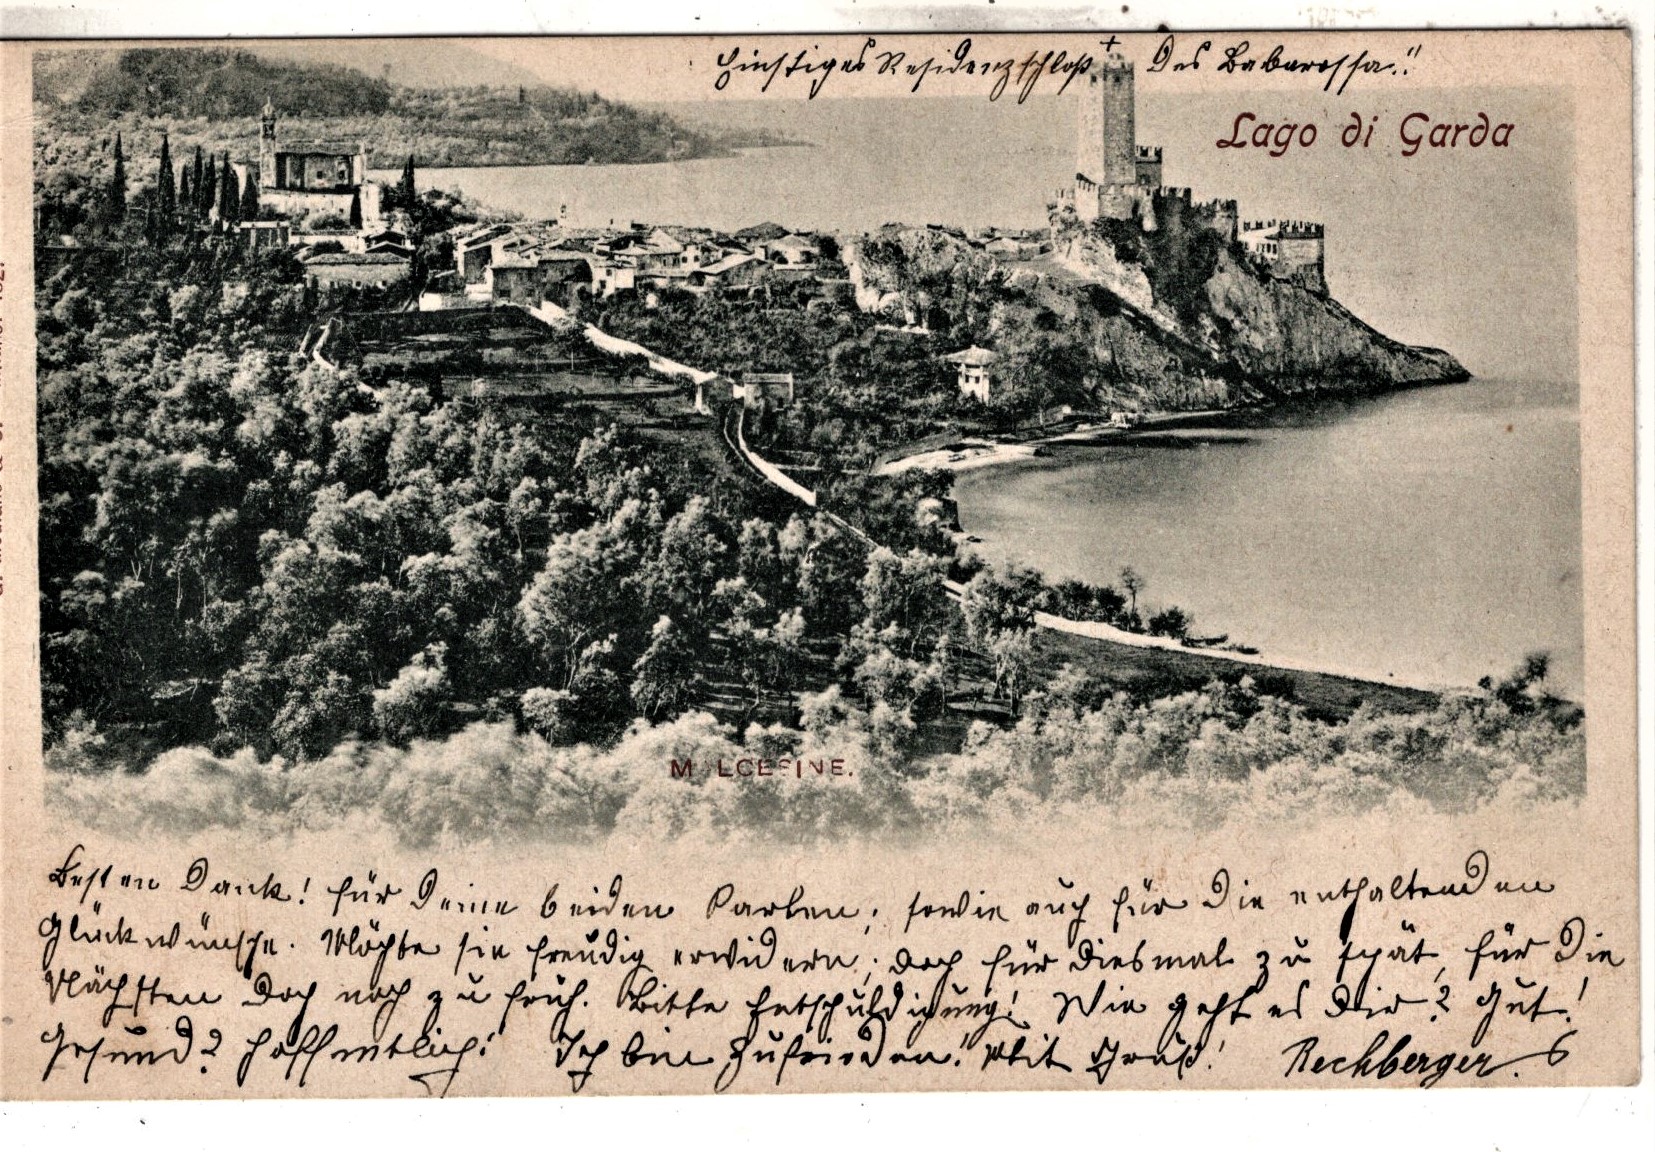 Einstiges Residenzschloß + Des Babarossa!!
Lago di Garda
MALCESINE.
Besten Dank! für Deine beiden Karten, sowie auch für Die enthaltenden
Glückwünsche. Möchte sie freudig erwidern, doch für diesmal zu spät, für Die
Nächsten doch noch zu früh. Bitte Entschuldigung! Wie geht es Dir? Gut!
Gesund? Hoffentlich! Ich bin Zufrieden! Mit Gruß! Rechberger.